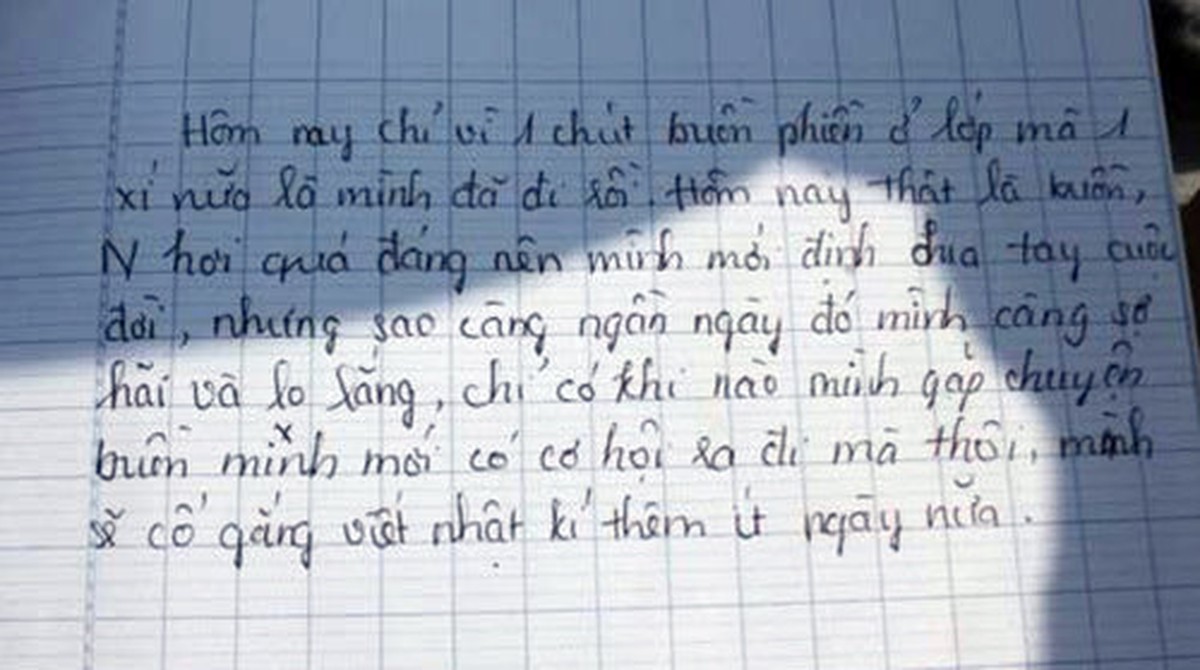 Hôm nay chỉ vì 1 chút buồn phiền ở lớp mà 1
xí nữa là mình đã đi rồi. Hôm nay thật là buồn,
N hơi quá đáng nên mình mới định đưa tay cuộc
đời, nhưng sao càng ngần ngày đó mình càng sợ
hãi và lo lắng, chỉ có khi nào mình gặp chuyện
buồn mình mới có cơ hội ra đi mà thôi, mình
sẽ cố gắng viết nhật kí thêm ít ngày nữa.